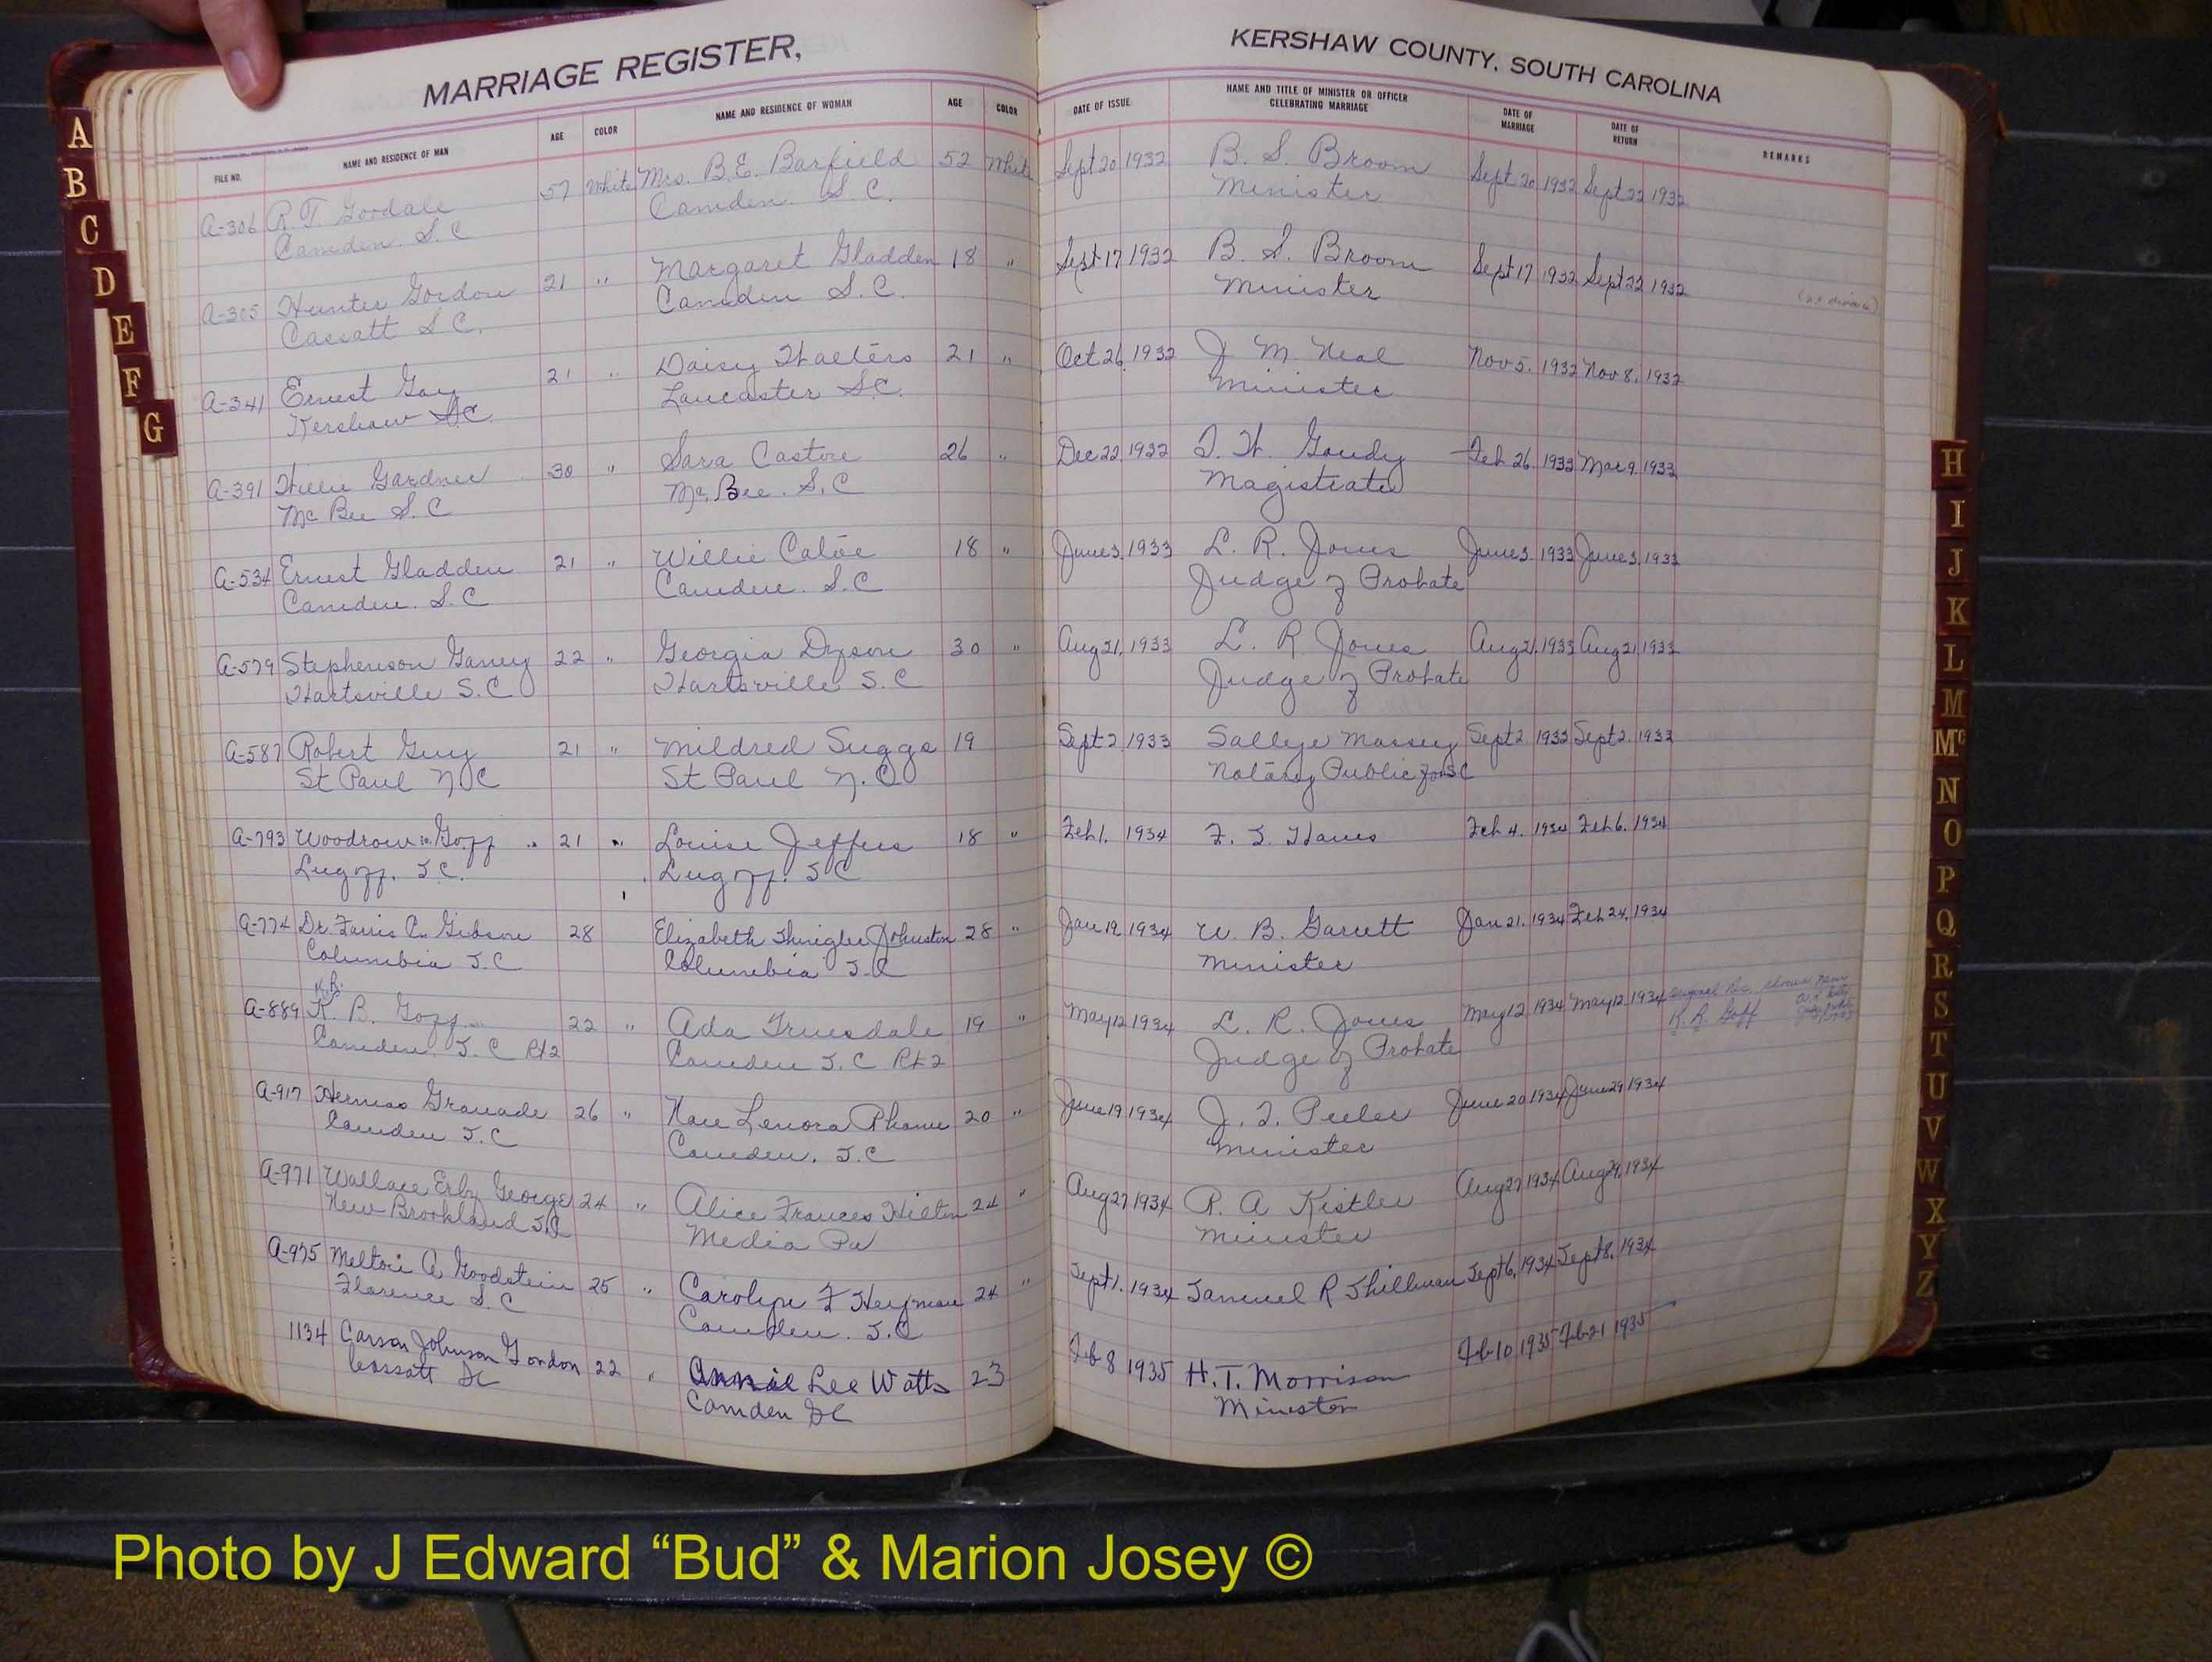 MARRIAGE REGISTER,
FILE NO. NAME AND RESIDENCE OF MAN AGE COLOR NAME AND RESIDENCE OF WOMAN AGE COLOR
A-306 R T Goodale 57 White Mrs. B. E. Barfield 52 White
Camden S. C Camden. S. C.
A-305 Hunter Gordon 21 " Margaret Gladden 18 "
Cassatt S C. Camden S. C.
A-341 Ernest Gay 21 " Daisy Walters 21 "
Kershaw SC. Lancaster S.C.
A-391 Willie Gardner 30 " Sara Castore 26 "
Mc Bee S. C Mc Bee. S. C
A-534 Ernest Gladden 21 " Willie Catoe 18 "
Camden. S. C Camden. S. C
A-579 Stephenson Ganey 22 " Georgia Dyson 30 "
Hartsville S. C Hartsville S. C
A-587 Robert Guy 21 " Mildred Suggs 19
St Paul N C St Paul N. C
A-793 Woodrow Goff 21 " Louise Jeffers 18 "
Lugoff. S. C. Lugoff. S C
A-774 Dr. 28 Elizabeth Johnston 28 "
Columbia S. C Columbia S. C
K. R.
A-889 K. B. Goff 22 " Ada Truesdale 19 "
Camden. S. C Rt 2 Camden S. C Rt 2
A-917 Granade 26 " Lenora 20 "
Camden S. C Camden. S. C
A-971 Wallace Erby George 24 " Alice Frances Hilton 24 "
New Brookland S. C Media Pa
A-975 Melton A Goodstein 25 " Carolyn F Heyman 24 "
Florence S. C Camden. S. C
1134 Carson Johnson Gordon 22 " Annie Lee Watts 23
Cassatt SC Camden SC
KERSHAW COUNTY, SOUTH CAROLINA
DATE OF ISSUE NAME AND TITLE OF MINISTER OR OFFICER CELEBRATING MARRIAGE DATE OF MARRIAGE DATE OF RETURN REMARKS
Sept 20 1932 B. S. Broom Sept 20 1932 Sept 22 1932
Minister
Sept 17 1932 B. S. Broom Sept 17 1932 Sept 22 1932
Minister
Oct 26 1932 J M. Neal Nov 5. 1932 Nov 8. 1932
Minister
Dec 22 1932 Goudy Feb 26. 1933 Mar 9. 1933
Magistrate
June 3. 1933 L. R. Jones June 3. 1933 June 3. 1933
Judge of Probate
Aug 21. 1933 L. R Jones Aug 21. 1933 Aug 21 1933
Judge of Probate
Sept 2 1933 Sallye Massey Sept 2. 1933 Sept 2. 1933
Notary Public for SC
Feb 1. 1934 Feb 4. 1934 Feb 6. 1934
Jan 19 1934 W. B. Garrett Jan 21. 1934 Feb 24. 1934
Minister
May 12 1934 L. R. Jones May 12 1934 May 12. 1934 Original Rec. shows
Judge of Probate K. R. Goff
June 19 1934 Peeler June 20 1934 June 29 1934
Minister
Aug 27 1934 P. A Kistler Aug 27 1934 Aug 29, 1934
Minister
Sept 1. 1934 Samuel R Shillman Sept 6, 1934 Sept 8. 1934
Feb 8 1935 H. T. Morrison Feb 10 1935 Feb 21 1935
Minister
A
B
C
D
E
F
G
H
I
J
K
L
M
Mc
N
O
P
Q
R
S
T
U
V
W
X
Y
Z
Photo by J Edward “Bud” & Marion Josey ©